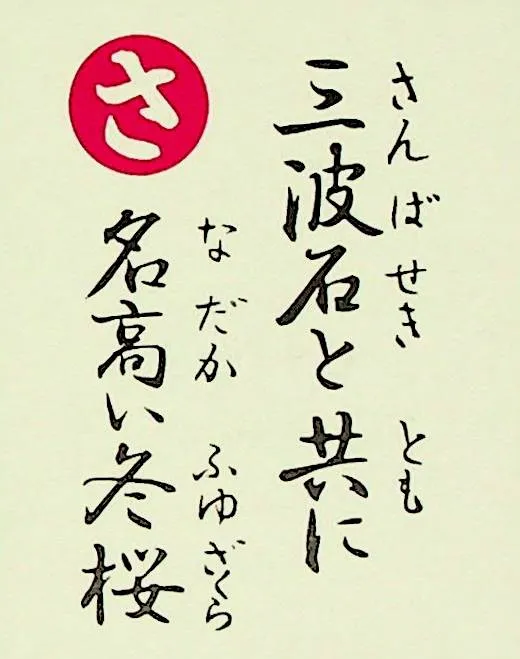 さ
三波石と共に
さんばせき とも
名高い冬桜
なだか ふゆざくら